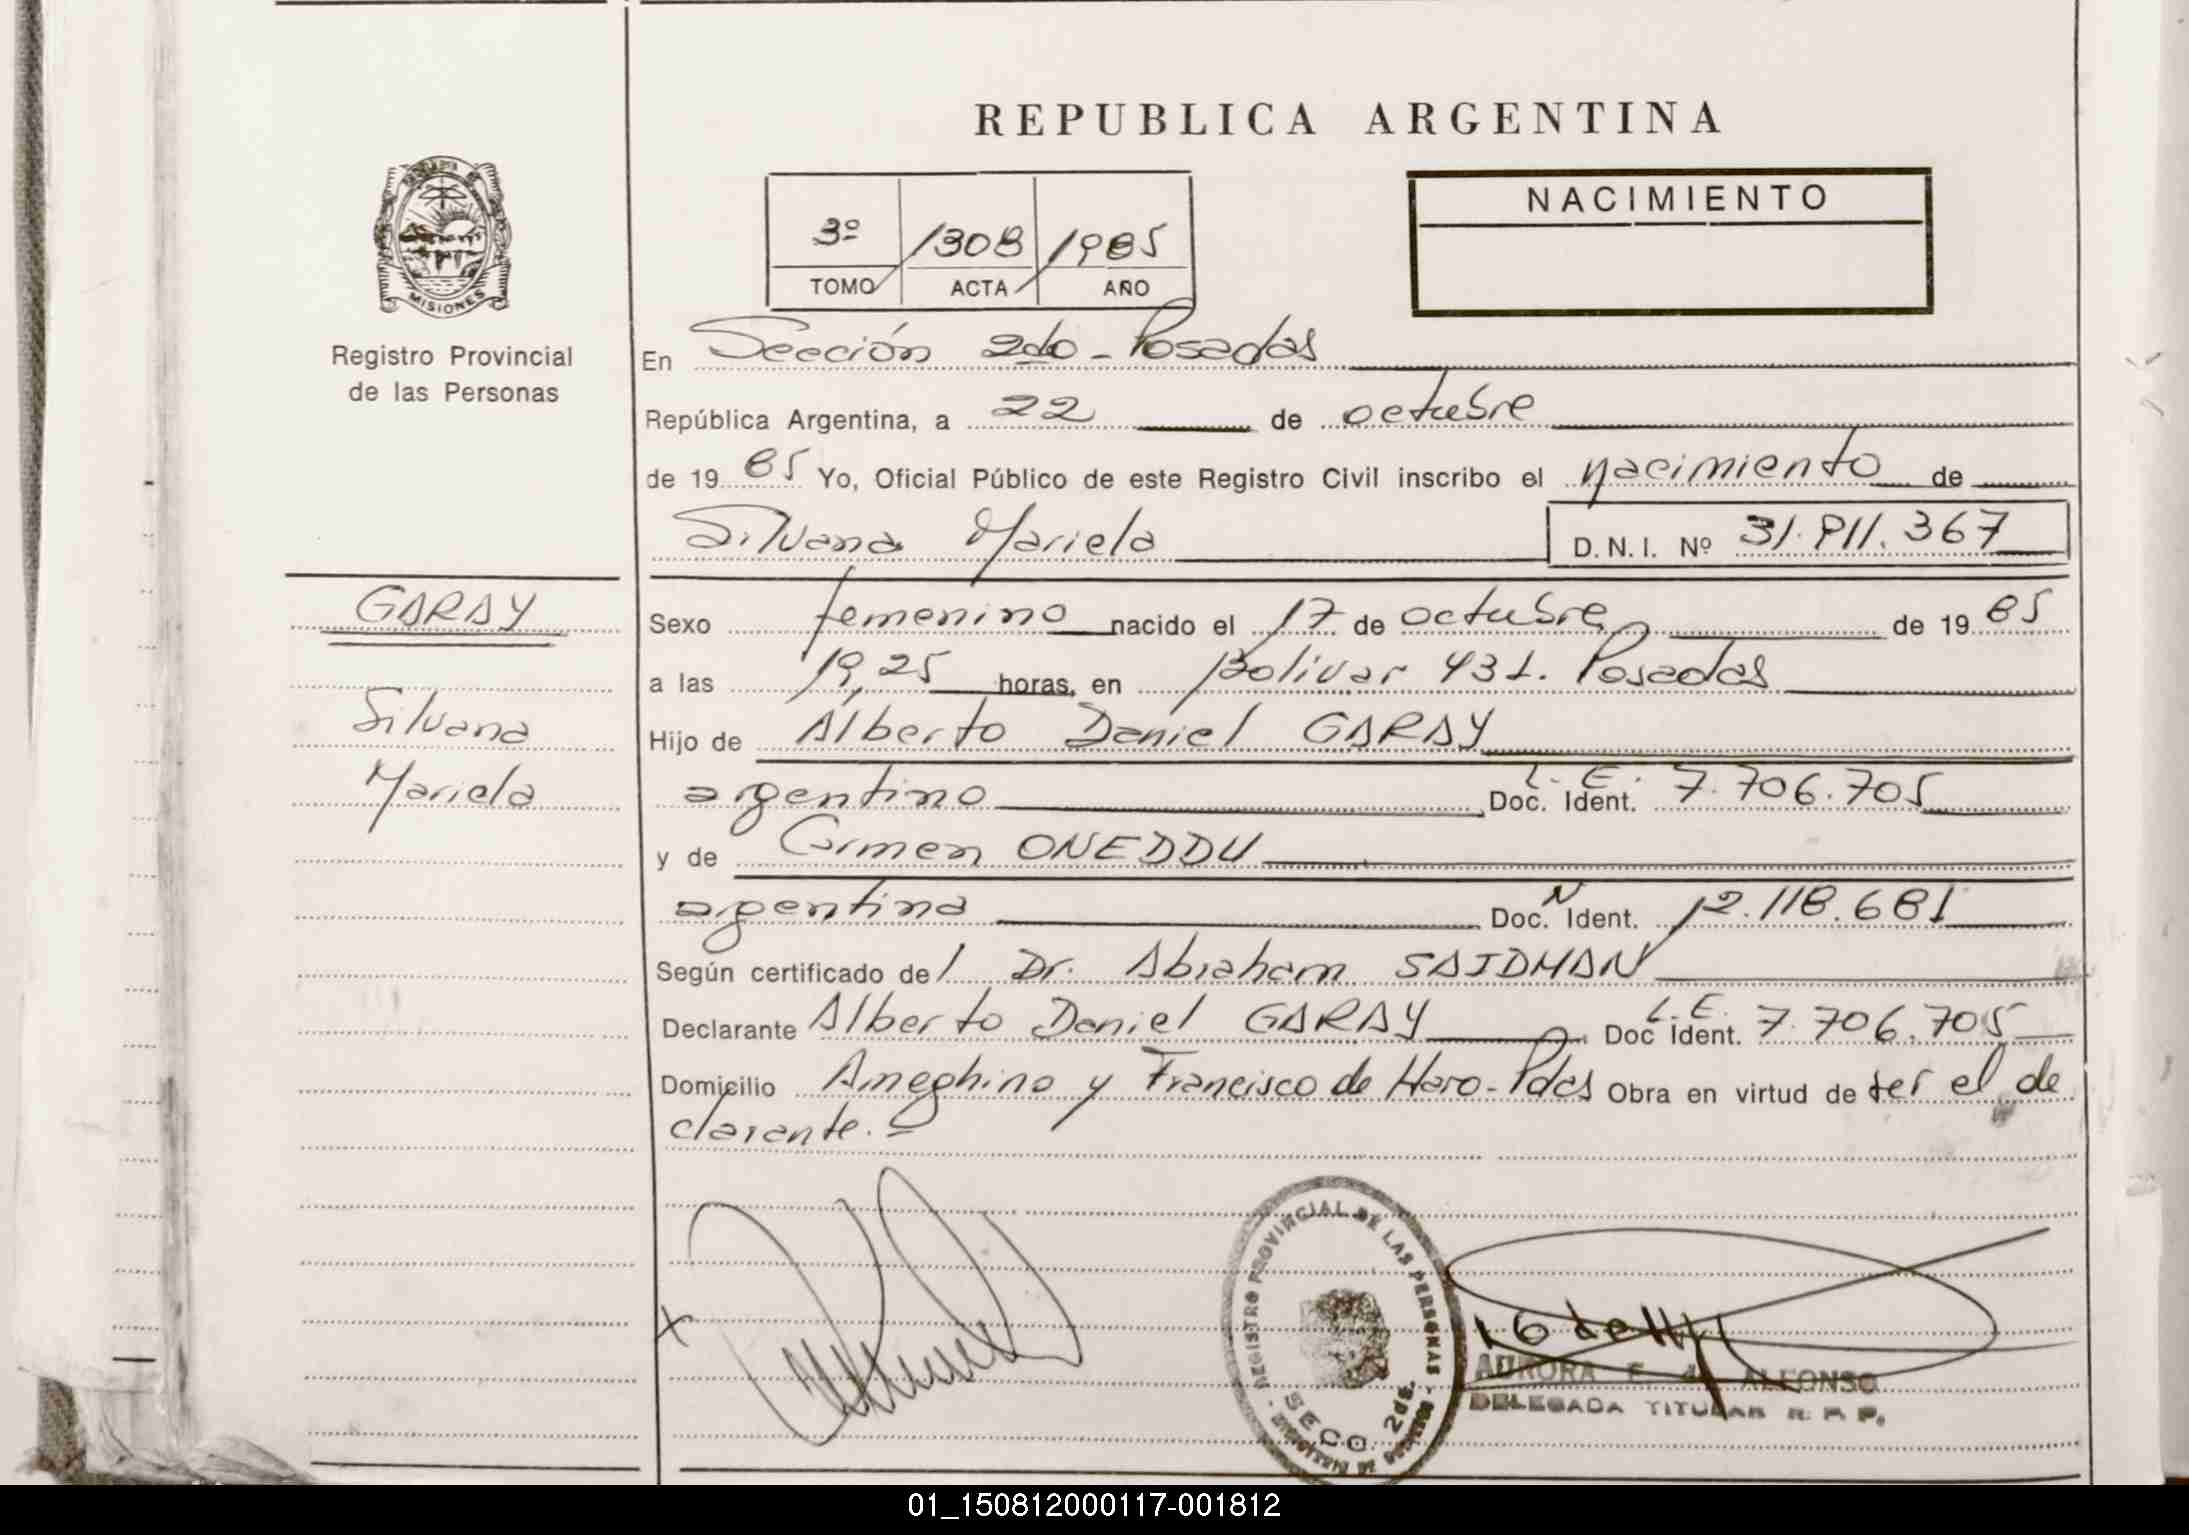 REPUBLICA ARGENTINA
MISIONES
Registro Provincial
de las Personas
3º 1308 1985
TOMO ACTA AÑO
NACIMIENTO
En Sección 2do - Posadas
República Argentina, a 22 de octubre
de 19 85 Yo, Oficial Público de este Registro Civil inscribo el nacimiento de
Silvana Mariela D.N.I. Nº 31.911.367
GARAY
Silvana
Mariela
Sexo femenino nacido el 17 de octubre de 19 85
a las 19,25 horas, en Bolivar 431. Posadas
Hijo de Alberto Daniel GARAY
argentino Doc. Ident. L.E. 7.706.705
y de Carmen ONEDDU
argentina Doc. N Ident. 12.118.681
Según certificado del Dr. Abraham SAIDMAN
Declarante Alberto Daniel GARAY Doc Ident. L.E. 7.706.705
Domicilio Ameghino y Francisco de Haro - Pdas Obra en virtud de ser el de
clarante.-
REGISTRO PROVINCIAL DE LAS PERSONAS
SECC. 2da.
AURORA E. de ALFONSO
DELEGADA TITULAR R. P. P.
01_150812000117-001812